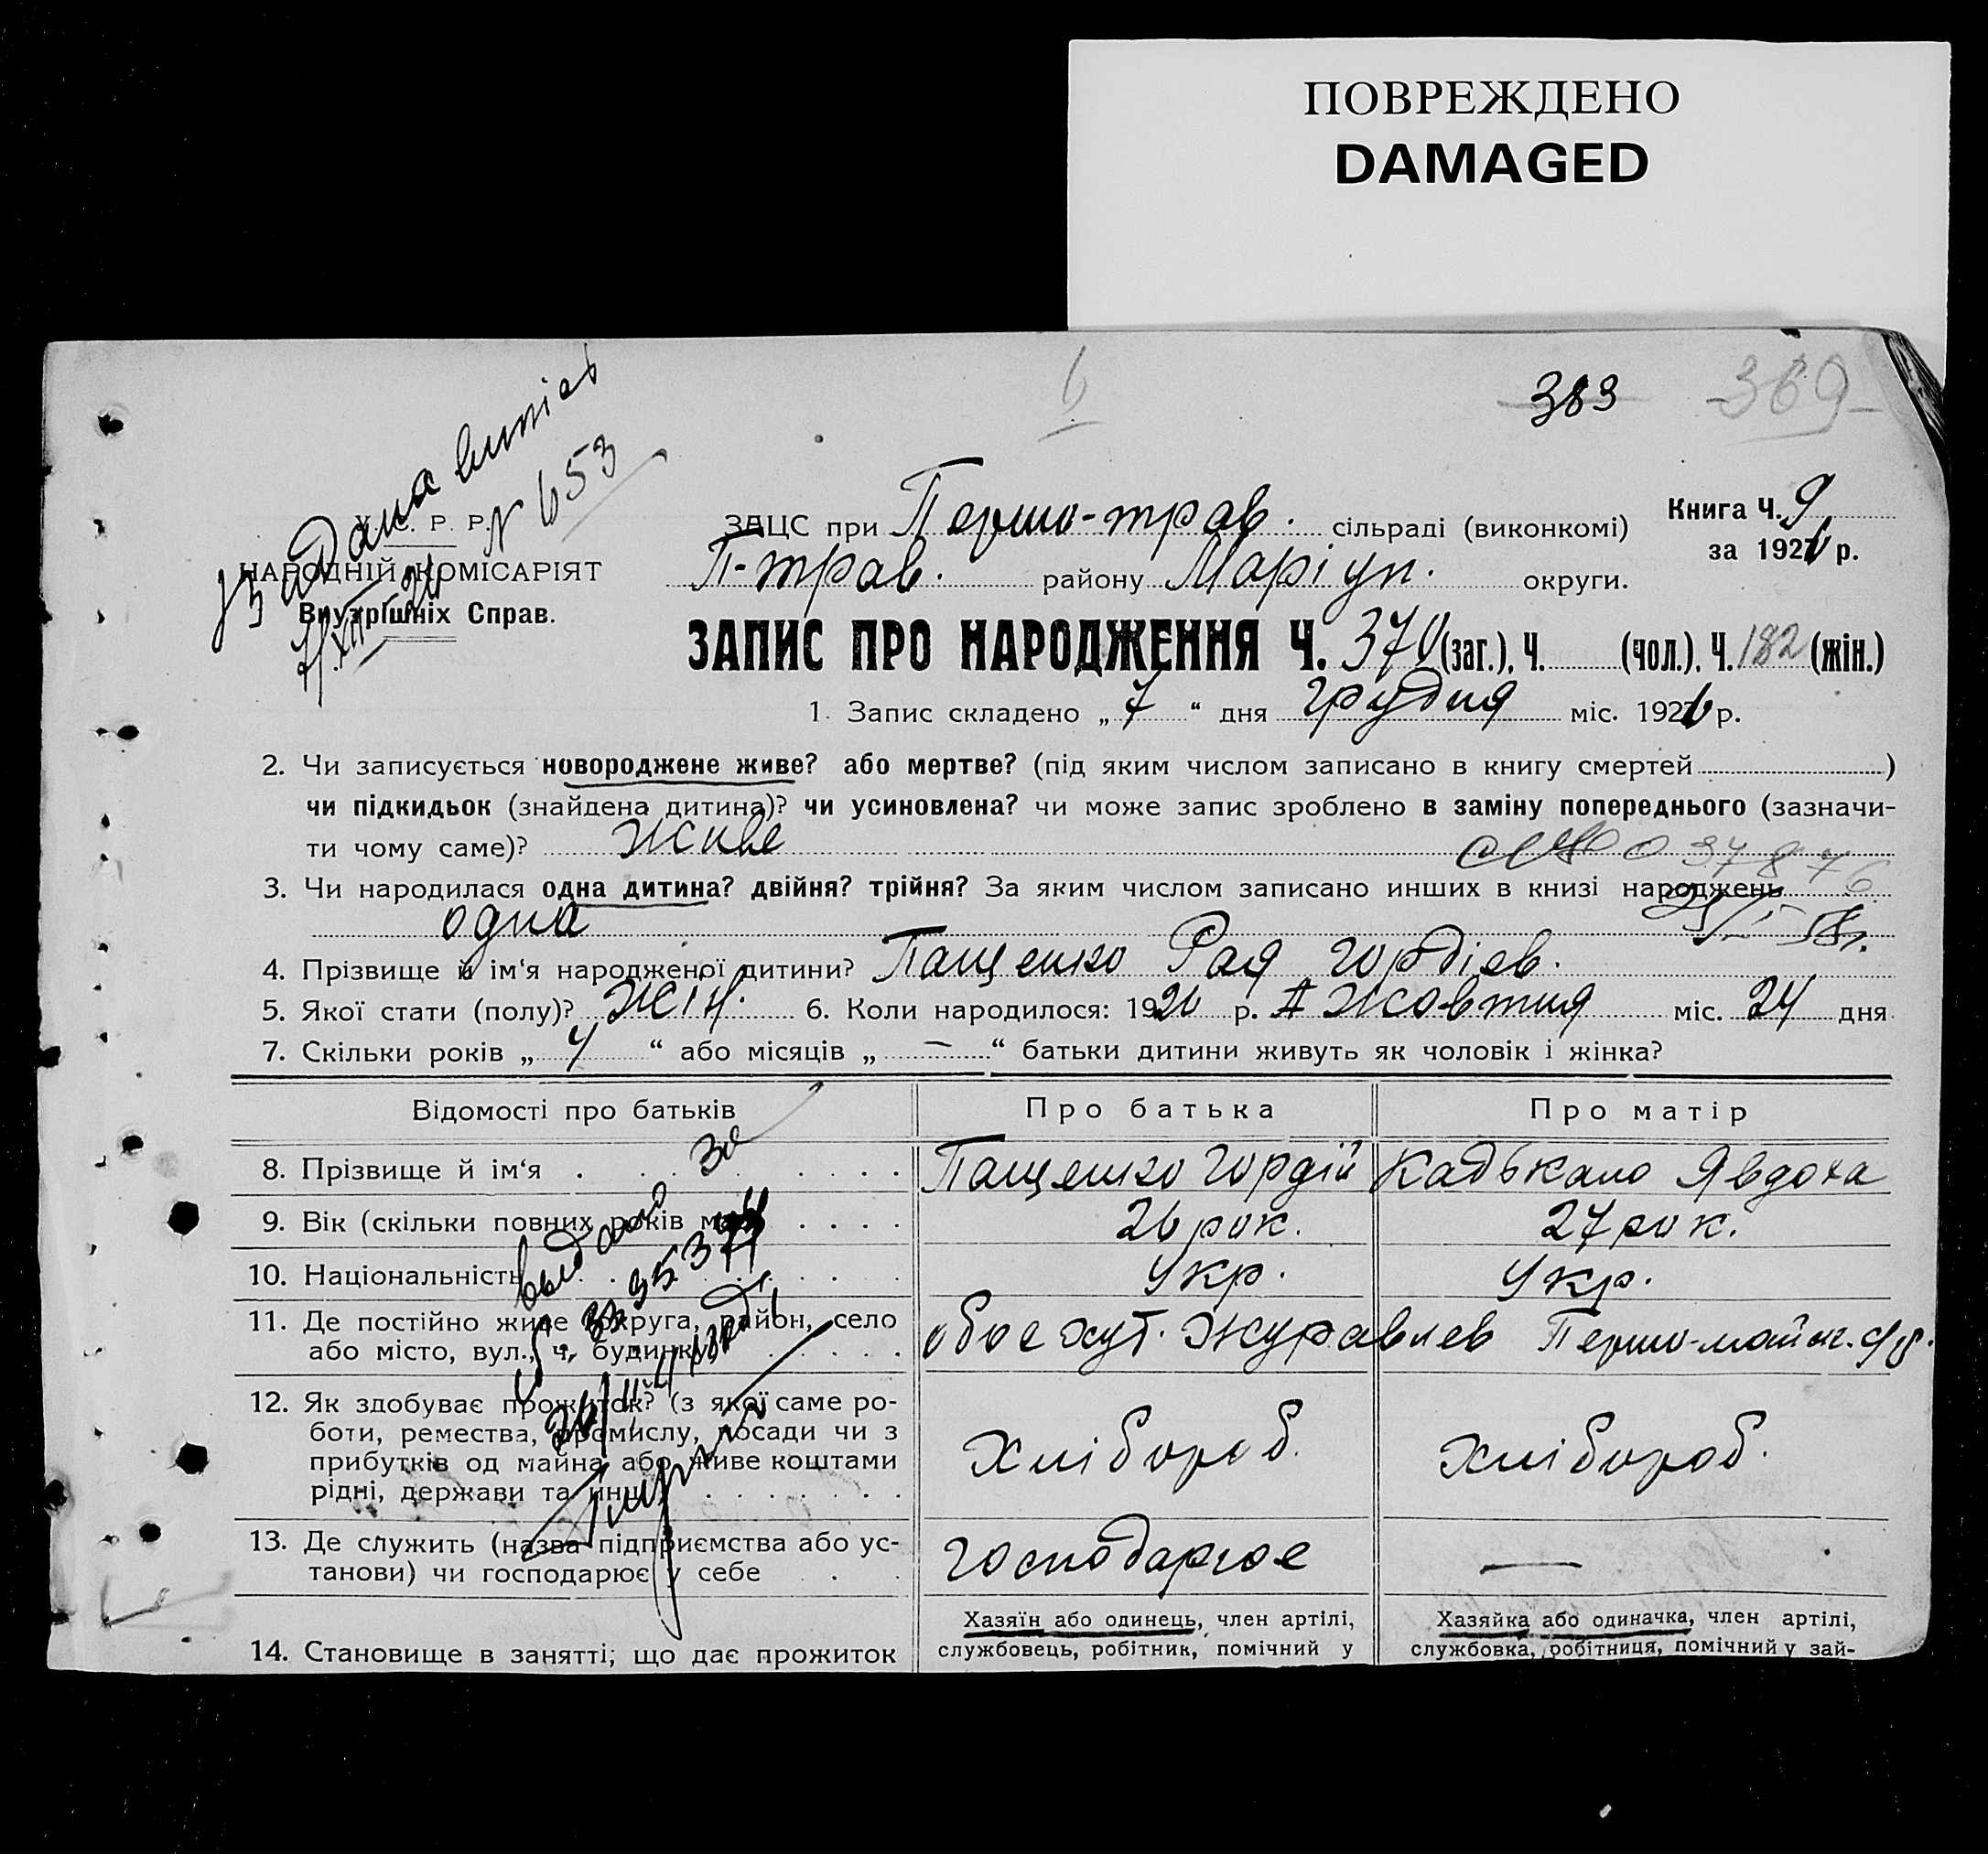 ПОВРЕЖДЕНО
DAMAGED
6
383 369
Задана витяг
N 653
7/XII-26
У. С. Р. Р.
НАРОДНІЙ КОМІСАРІЯТ
Внутрішніх Справ.
ЗАЦС при Першо-трав. сільраді (виконкомі)
Книга Ч. 9
за 1926 р.
П-трав. району Маріуп. округи.
ЗАПИС ПРО НАРОДЖЕННЯ Ч. 370 (заг.), Ч. (чол.), Ч. 182 (жін.)
1. Запис складено „ 7 “ дня грудня міс. 1926 р.
2. Чи записується новороджене живе? або мертве? (під яким числом записано в книгу смертей )
чи підкидьок (знайдена дитина)? чи усиновлена? чи може запис зроблено в заміну попереднього (зазначи-
ти чому саме)? живе
037876
3. Чи народилася одна дитина? двійня? трійня? За яким числом записано инших в книзі народжень
одна
4. Прізвище й ім‘я народженої дитини? Пащенко Рая Гордіев.
5. Якої стати (полу)? жін. 6. Коли народилося: 1926 р. жовтня міс. 24 дня
7. Скільки років „ 4 “ або місяців „ — “ батьки дитини живуть як чоловік і жінка?
Відомості про батьків Про батька Про матір
8. Прізвище й ім‘я Пащенко Гордій Кадькало Явдоха
9. Вік (скільки повних років має) 26 рок. 27 рок.
10. Національність Укр. Укр.
11. Де постійно живе (округа, район, село
або місто, вул., ч. будинку) обое хут. Журавлев Першо-майск.
12. Як здобуває прожиток? (з якої саме ро-
боти, ремества, промислу, посади чи з
прибутків од майна або живе коштами
рідні, держави та инш.) Хлібороб. Хлібороб.
13. Де служить (назва підприємства або ус-
танови) чи господарює у себе господарює —
14. Становище в занятті; що дає прожиток
Хазяїн або одинець, член артілі,
службовець, робітник, помічний у
Хазяйка або одиначка, член артілі,
службовка, робітниця, помічний у зай-